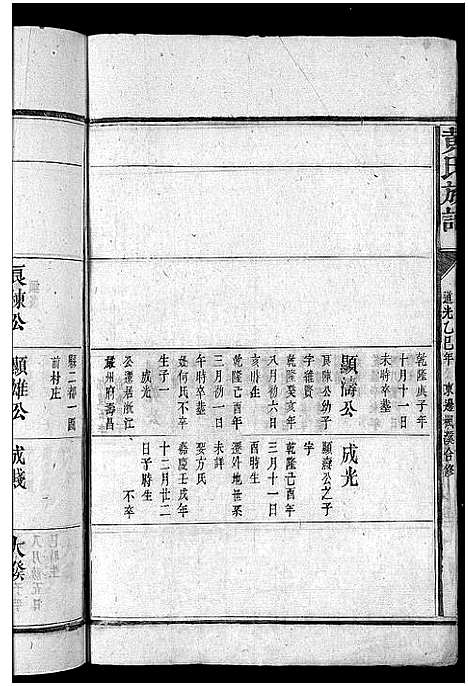 黄氏族譜
道光乙巳年
東邊楓溪合修
乾隆庚子年
十月十一日
未時卒墓
顯濤公
良陳公幼子
字雅賢
乾隆癸亥年
八月初六日
亥時生
乾隆己酉年
三月初一日
午時卒墓
娶何氏不卒
生子一
成光
公遷居浙江
嚴州府壽昌
成光
顯濤公之子
字
乾隆己酉年
三月十一日
酉時生
歿外地世墓
未詳
娶方氏
嘉慶壬戌年
十二月廿二
日子時生
不卒
縣二都一圖
前村庄
良陳公
顯雄公
成錢
大癸